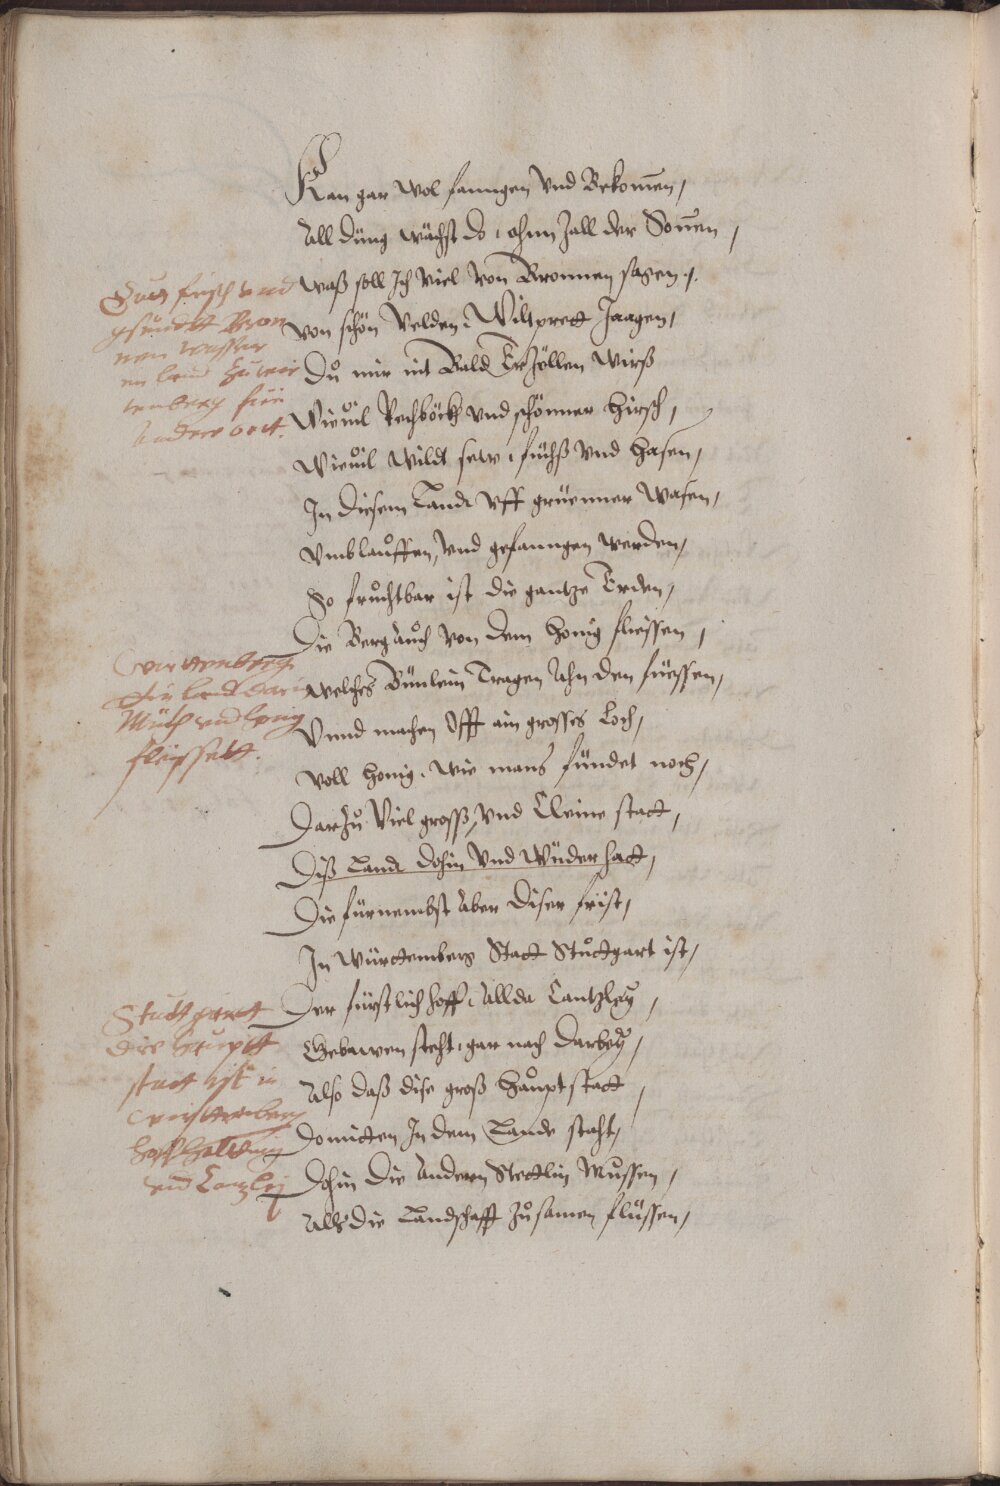 Kan gar wol fanngen Vnd Bekom̄en,
All düng wächst do, ohnn Zall der Son̄en,
Waß soll Ich Viel Von Bronnen sagen,
Von schön Velden, Wiltprett Jaagen,
Dů mir nit Bald Er Zöllen Wirß
Wieuil Rechböckh Vnd schönner Hirsch,
Wieuil Wildt sew, füchß Vnd Hasen,
In diesem Landt Vff grüenner Wasen,
Vmblauffen, Vnd gefanngen Werden,
So fruchtbar ist die gantze Erden,
Die Berg auch Von dem Honig fliessen,
Welches Bünlein Tragen Ahn den füessen,
Vnnd machen Offt ain grosses Loch,
Voll Honig, wie mans fündet noch,
Darzu Viel gross, Vnd Cleine statt,
Diß Landt dohin Vnd Wüder hatt,
Die fürnembst Aber diser frist,
In Württemberg Statt Stuttgart ist,
Der fürstlich Hoff, Allda Cantzley,
Gebawen steht, gar nach darbey,
Also daß dise groß Hauptstatt,
Domitten In dem Lande staht,
Dohin die Andern Stettlin Mussen,
Alls die Landschafft Zusamen flüssen,
frisch vnd
gesundtt Bron
nen wasser
im land zu wir
tenberg für
andere ortt.
Wirttemberg
ein land darin
Milch vnd honig
fliessett.
Stuttgartt
die hauptt
statt ist in
Wirttemberg
hoffhalttung
vnd Canzlej